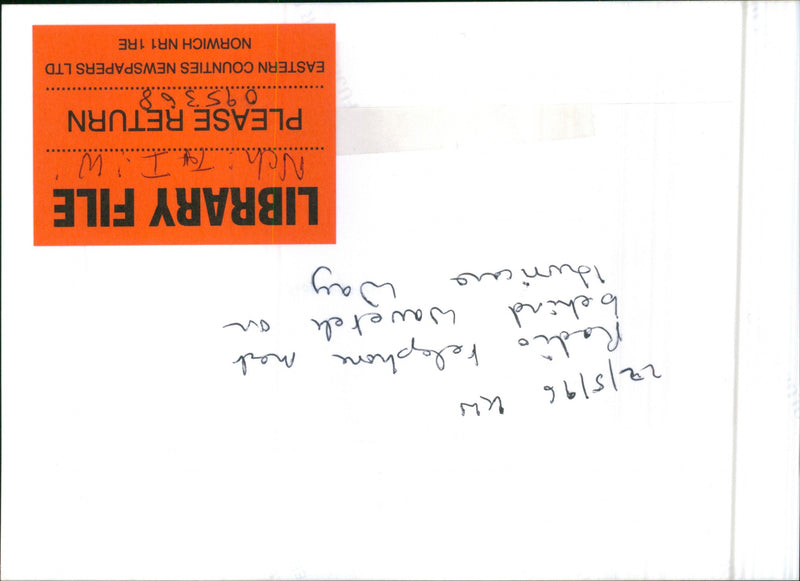 22/5/96 KW
Radio telephone mast
behind Wavetek on
Hurricane Way
LIBRARY FILE
Nch:
PLEASE RETURN
095368
EASTERN COUNTIES NEWSPAPERS LTD
NORWICH NR1 1RE